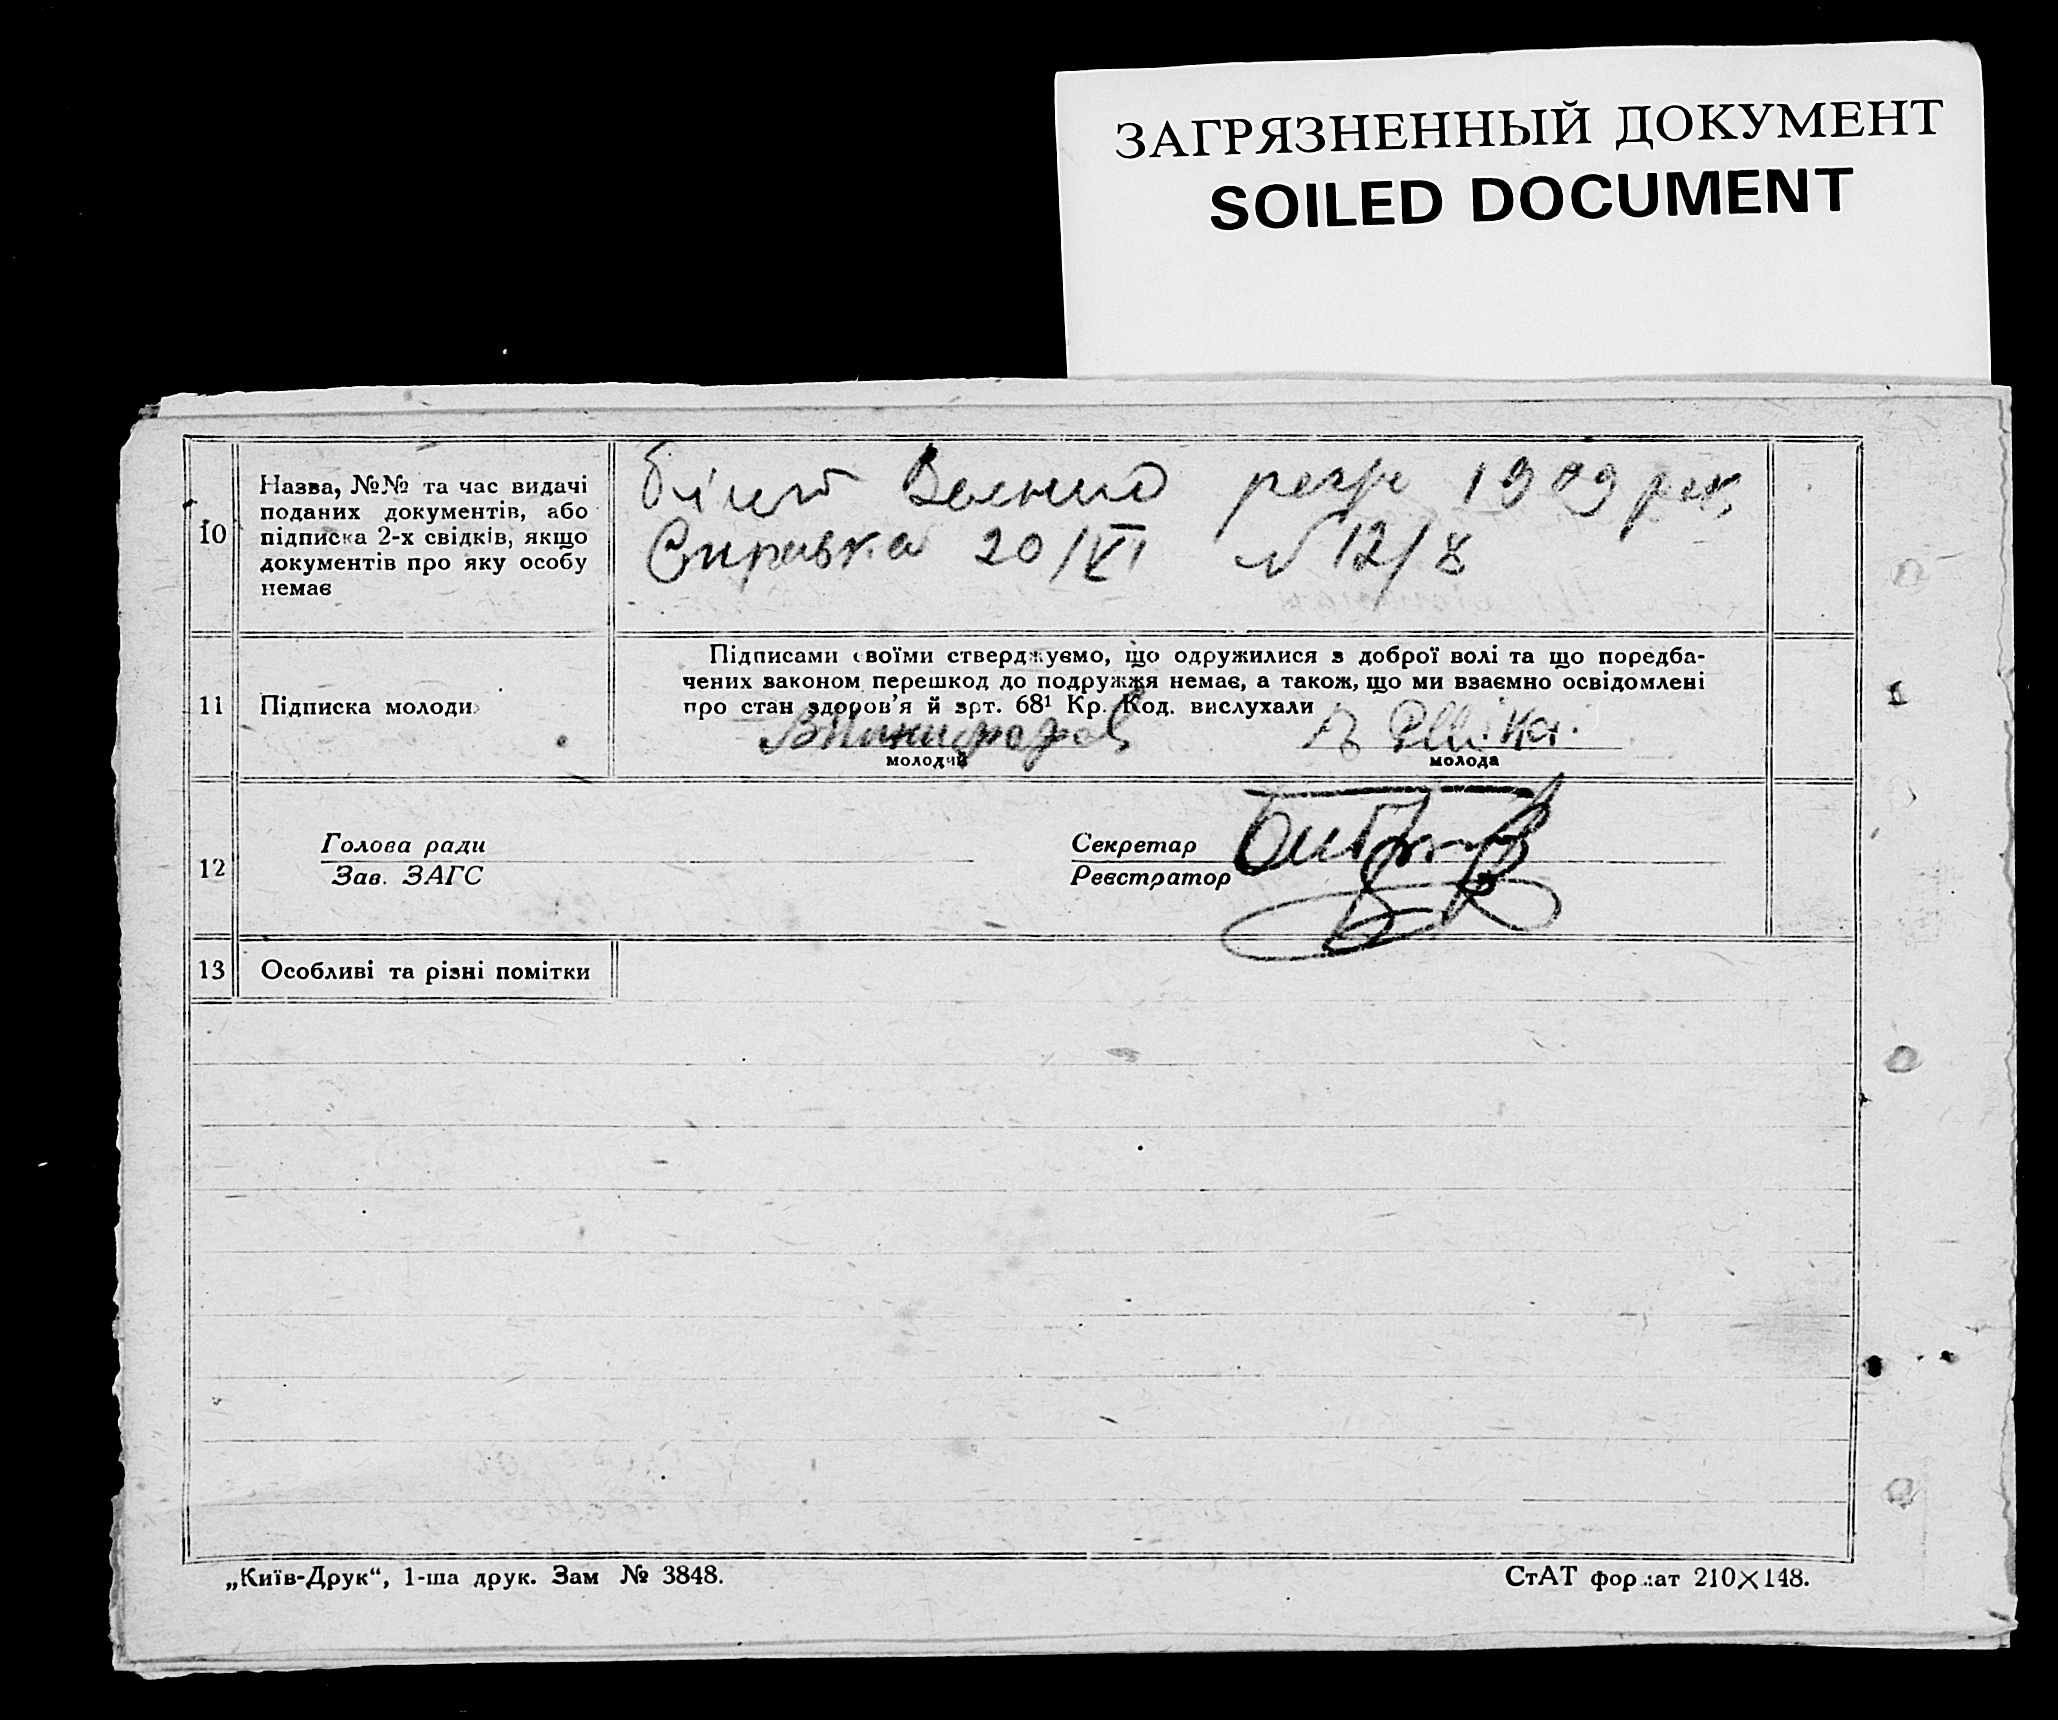 ЗАГРЯЗНЕННЫЙ ДОКУМЕНТ
SOILED DOCUMENT
10
Назва, №№ та час видачі
поданих документів, або
підписка 2-х свідків, якщо
документів про яку особу
немає
білет 1909 рок,
Справка 20/VI N 12/8
11
Підписка молоди
Підписами своїми стверджуємо, що одружилися з доброї волі та що поредба-
чених законом перешкод до подружжя немає, а також, що ми взаємно освідомлені
про стан здоров'я й арт. 68¹ Кр. Код. вислухали
молодий
молода
12
Голова ради
Зав. ЗАГС
Секретар
Реєстратор
13
Особливі та різні помітки
„Київ-Друк“, 1-ша друк. Зам № 3848.
СтАТ формат 210×148.